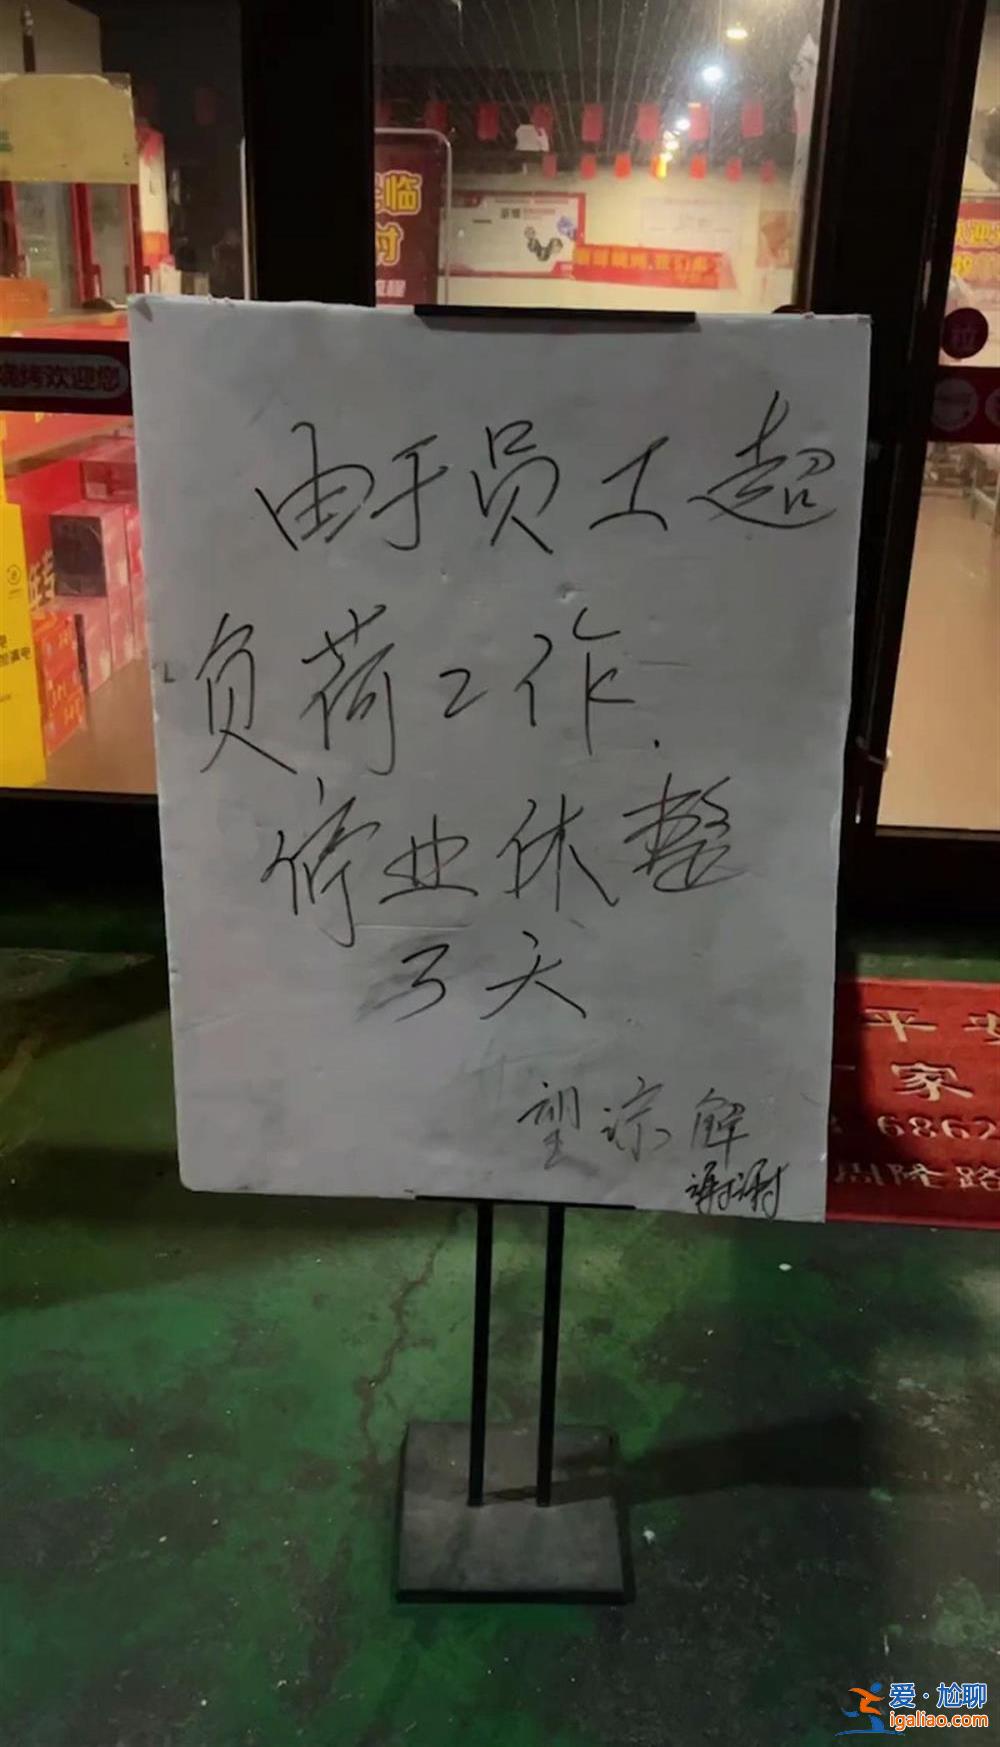 临
时
烧烤欢迎您
拉
由于员工超
负荷工作.
停业休整
3天
望谅解
谢谢
平安
家
6862
周陵路
爱·尬聊
igaliao.com